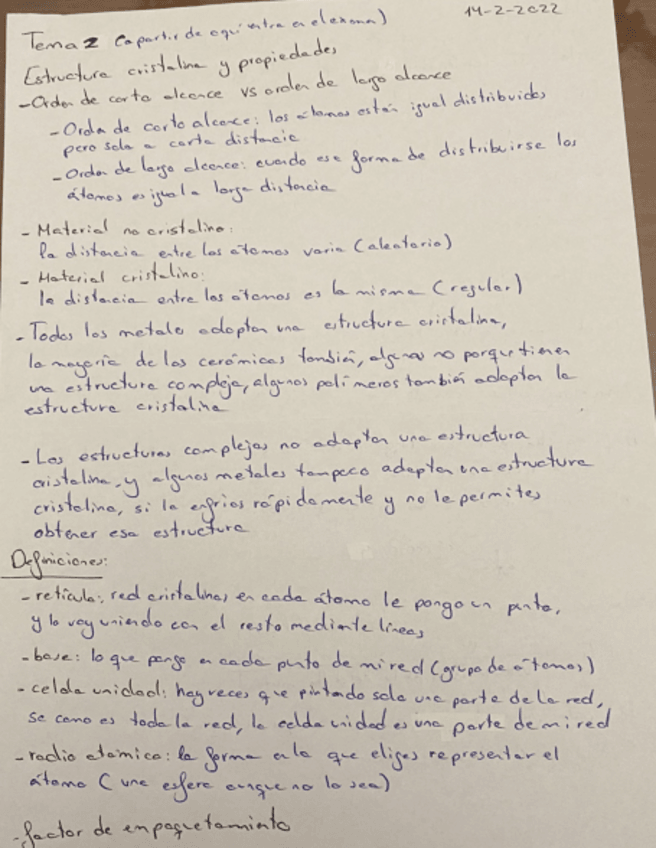 14-2-2022
Tema 2 (a partir de aquí entra en el examen)
Estructura cristalina y propiedades
- Orden de corto alcance vs orden de largo alcance
- Orden de corto alcance: los átomos están igual distribuidos
pero solo a corta distancia
- Orden de largo alcance: cuando esa forma de distribuirse los
átomos es igual a larga distancia
- Material no cristalino:
la distancia entre los átomos varia (aleatorio)
- Material cristalino:
la distancia entre los átomos es la misma (regular)
- Todos los metales adoptan una estructura cristalina,
la mayoría de las cerámicas también, algunas no porque tienen
una estructura compleja, algunos polímeros también adoptan la
estructura cristalina
- Las estructuras complejas no adoptan una estructura
cristalina, y algunos metales tampoco adoptan una estructura
cristalina, si la enfrias rápidamente y no le permites
obtener esa estructura
Definiciones:
- retícula: red cristalina, en cada átomo le pongo un punto,
y lo voy uniendo con el resto mediante líneas
- base: lo que pongo en cada punto de mi red (grupo de átomos)
- celda unidad: hay veces que pintando solo una parte de la red,
se como es toda la red, la celda unidad es una parte de mi red
- radio atómico: la forma en la que eliges representar el
átomo (une esfera aunque no lo sea)
- factor de empaquetamiento